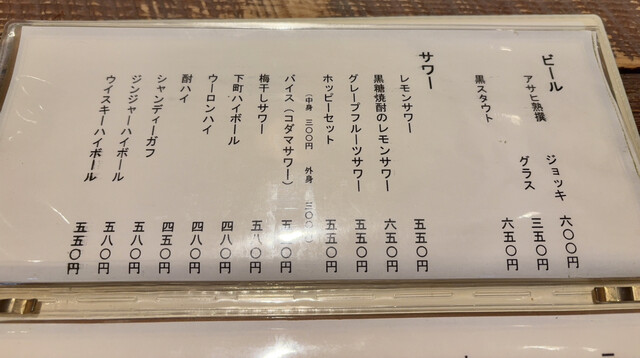 ビール
アサヒ熟撰 ジョッキ 六〇〇円
グラス 三五〇円
黒スタウト 六五〇円
サワー
レモンサワー 五五〇円
黒糖焼酎のレモンサワー 六五〇円
グレープフルーツサワー 五五〇円
ホッピーセット 五五〇円
（中身 三〇〇円 外身 三〇〇
バイス（コダマサワー） 五五〇円
梅干しサワー 五八〇円
下町ハイボール 四八〇円
ウーロンハイ 四八〇円
酎ハイ 四五〇円
シャンディーガフ 五八〇円
ジンジャーハイボール 五八〇円
ウイスキーハイボール 五五〇円